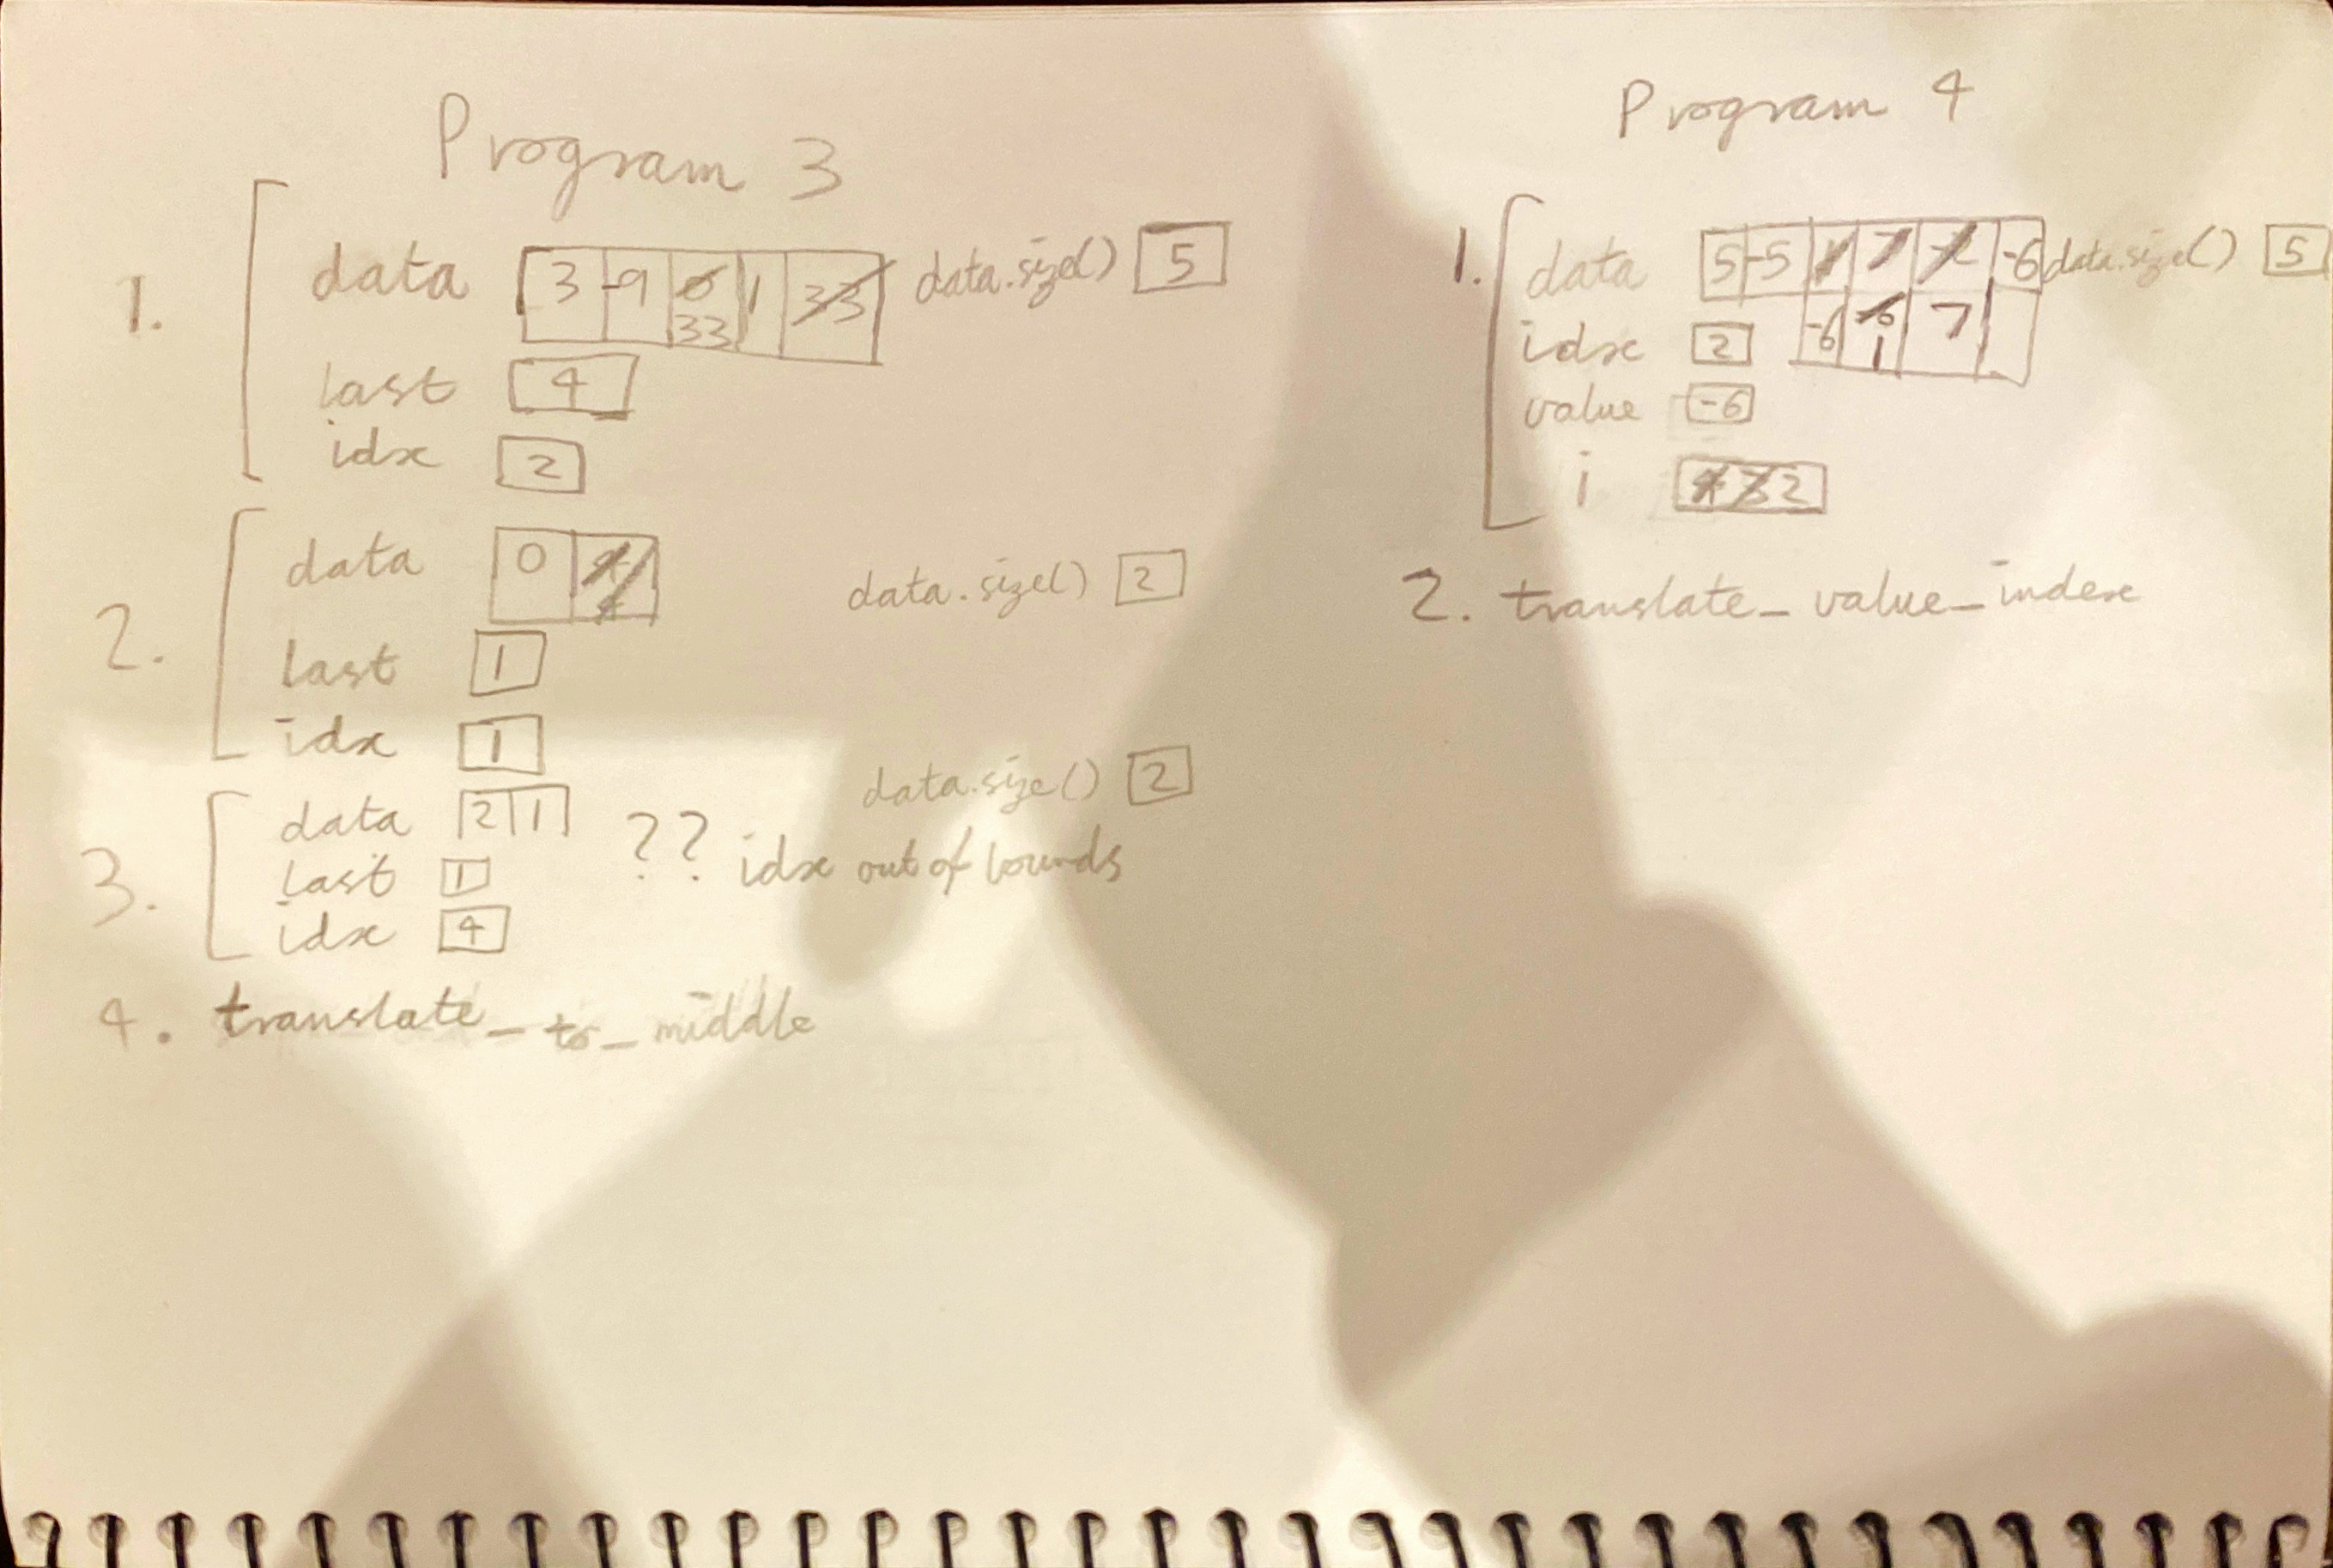 Program 3
1.
data 3 -9 6 1 33 data.size() 5
33
last 4
idx 2
2.
data 0 data.size() 2
last 1
idx 1
3.
data.size() 2
data 2 1 ?? idx out of bounds
last 1
idx 4
4. translate_to_middle
Program 4
1.
data 5 -5 1 7 -2 -6 data.size() 5
-6 -6 7
1
idx 2
value -6
i 4 3 2
2. translate_value_index